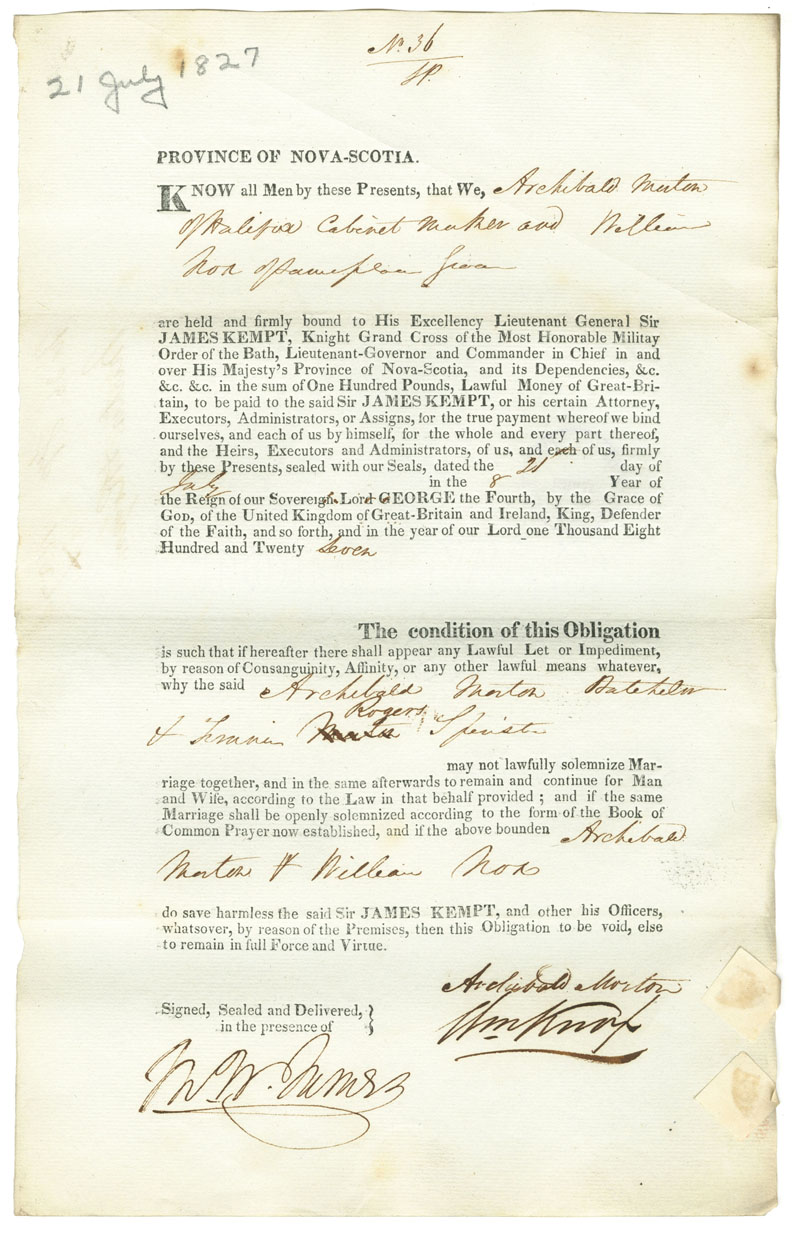 21 July 1827
No. 36
PROVINCE OF NOVA-SCOTIA.
KNOW all Men by these Presents, that We, Archibald Morton
of Halifax Cabinet Maker and William
Nox of same place
are held and firmly bound to His Excellency Lieutenant General Sir
JAMES KEMPT, Knight Grand Cross of the Most Honorable Militay
Order of the Bath, Lieutenant-Governor and Commander in Chief in and
over His Majesty's Province of Nova-Scotia, and its Dependencies, &c.
&c. &c. in the sum of One Hundred Pounds, Lawful Money of Great-Bri-
tain, to be paid to the said Sir JAMES KEMPT, or his certain Attorney,
Executors, Administrators, or Assigns, for the true payment whereof we bind
ourselves, and each of us by himself, for the whole and every part thereof,
and the Heirs, Executors and Administrators, of us, and each of us, firmly
by these Presents, sealed with our Seals, dated the 21st day of
July in the 8 Year of
the Reign of our Sovereign Lord GEORGE the Fourth, by the Grace of
GOD, of the United Kingdom of Great-Britain and Ireland, King, Defender
of the Faith, and so forth, and in the year of our Lord one Thousand Eight
Hundred and Twenty Seven
The condition of this Obligation
is such that if hereafter there shall appear any Lawful Let or Impediment,
by reason of Consanguinity, Affinity, or any other lawful means whatever,
why the said Archibald Morton Batchelor
Rogers
& Spinster
may not lawfully solemnize Mar-
riage together, and in the same afterwards to remain and continue for Man
and Wife, according to the Law in that behalf provided ; and if the same
Marriage shall be openly solemnized according to the form of the Book of
Common Prayer now established, and if the above bounden Archibald
Morton & William Nox
do save harmless the said Sir JAMES KEMPT, and other his Officers,
whatsover, by reason of the Premises, then this Obligation to be void, else
to remain in full Force and Virtue.
Archibald Morton
Signed, Sealed and Delivered,
in the presence of
Wm Knox
W. James